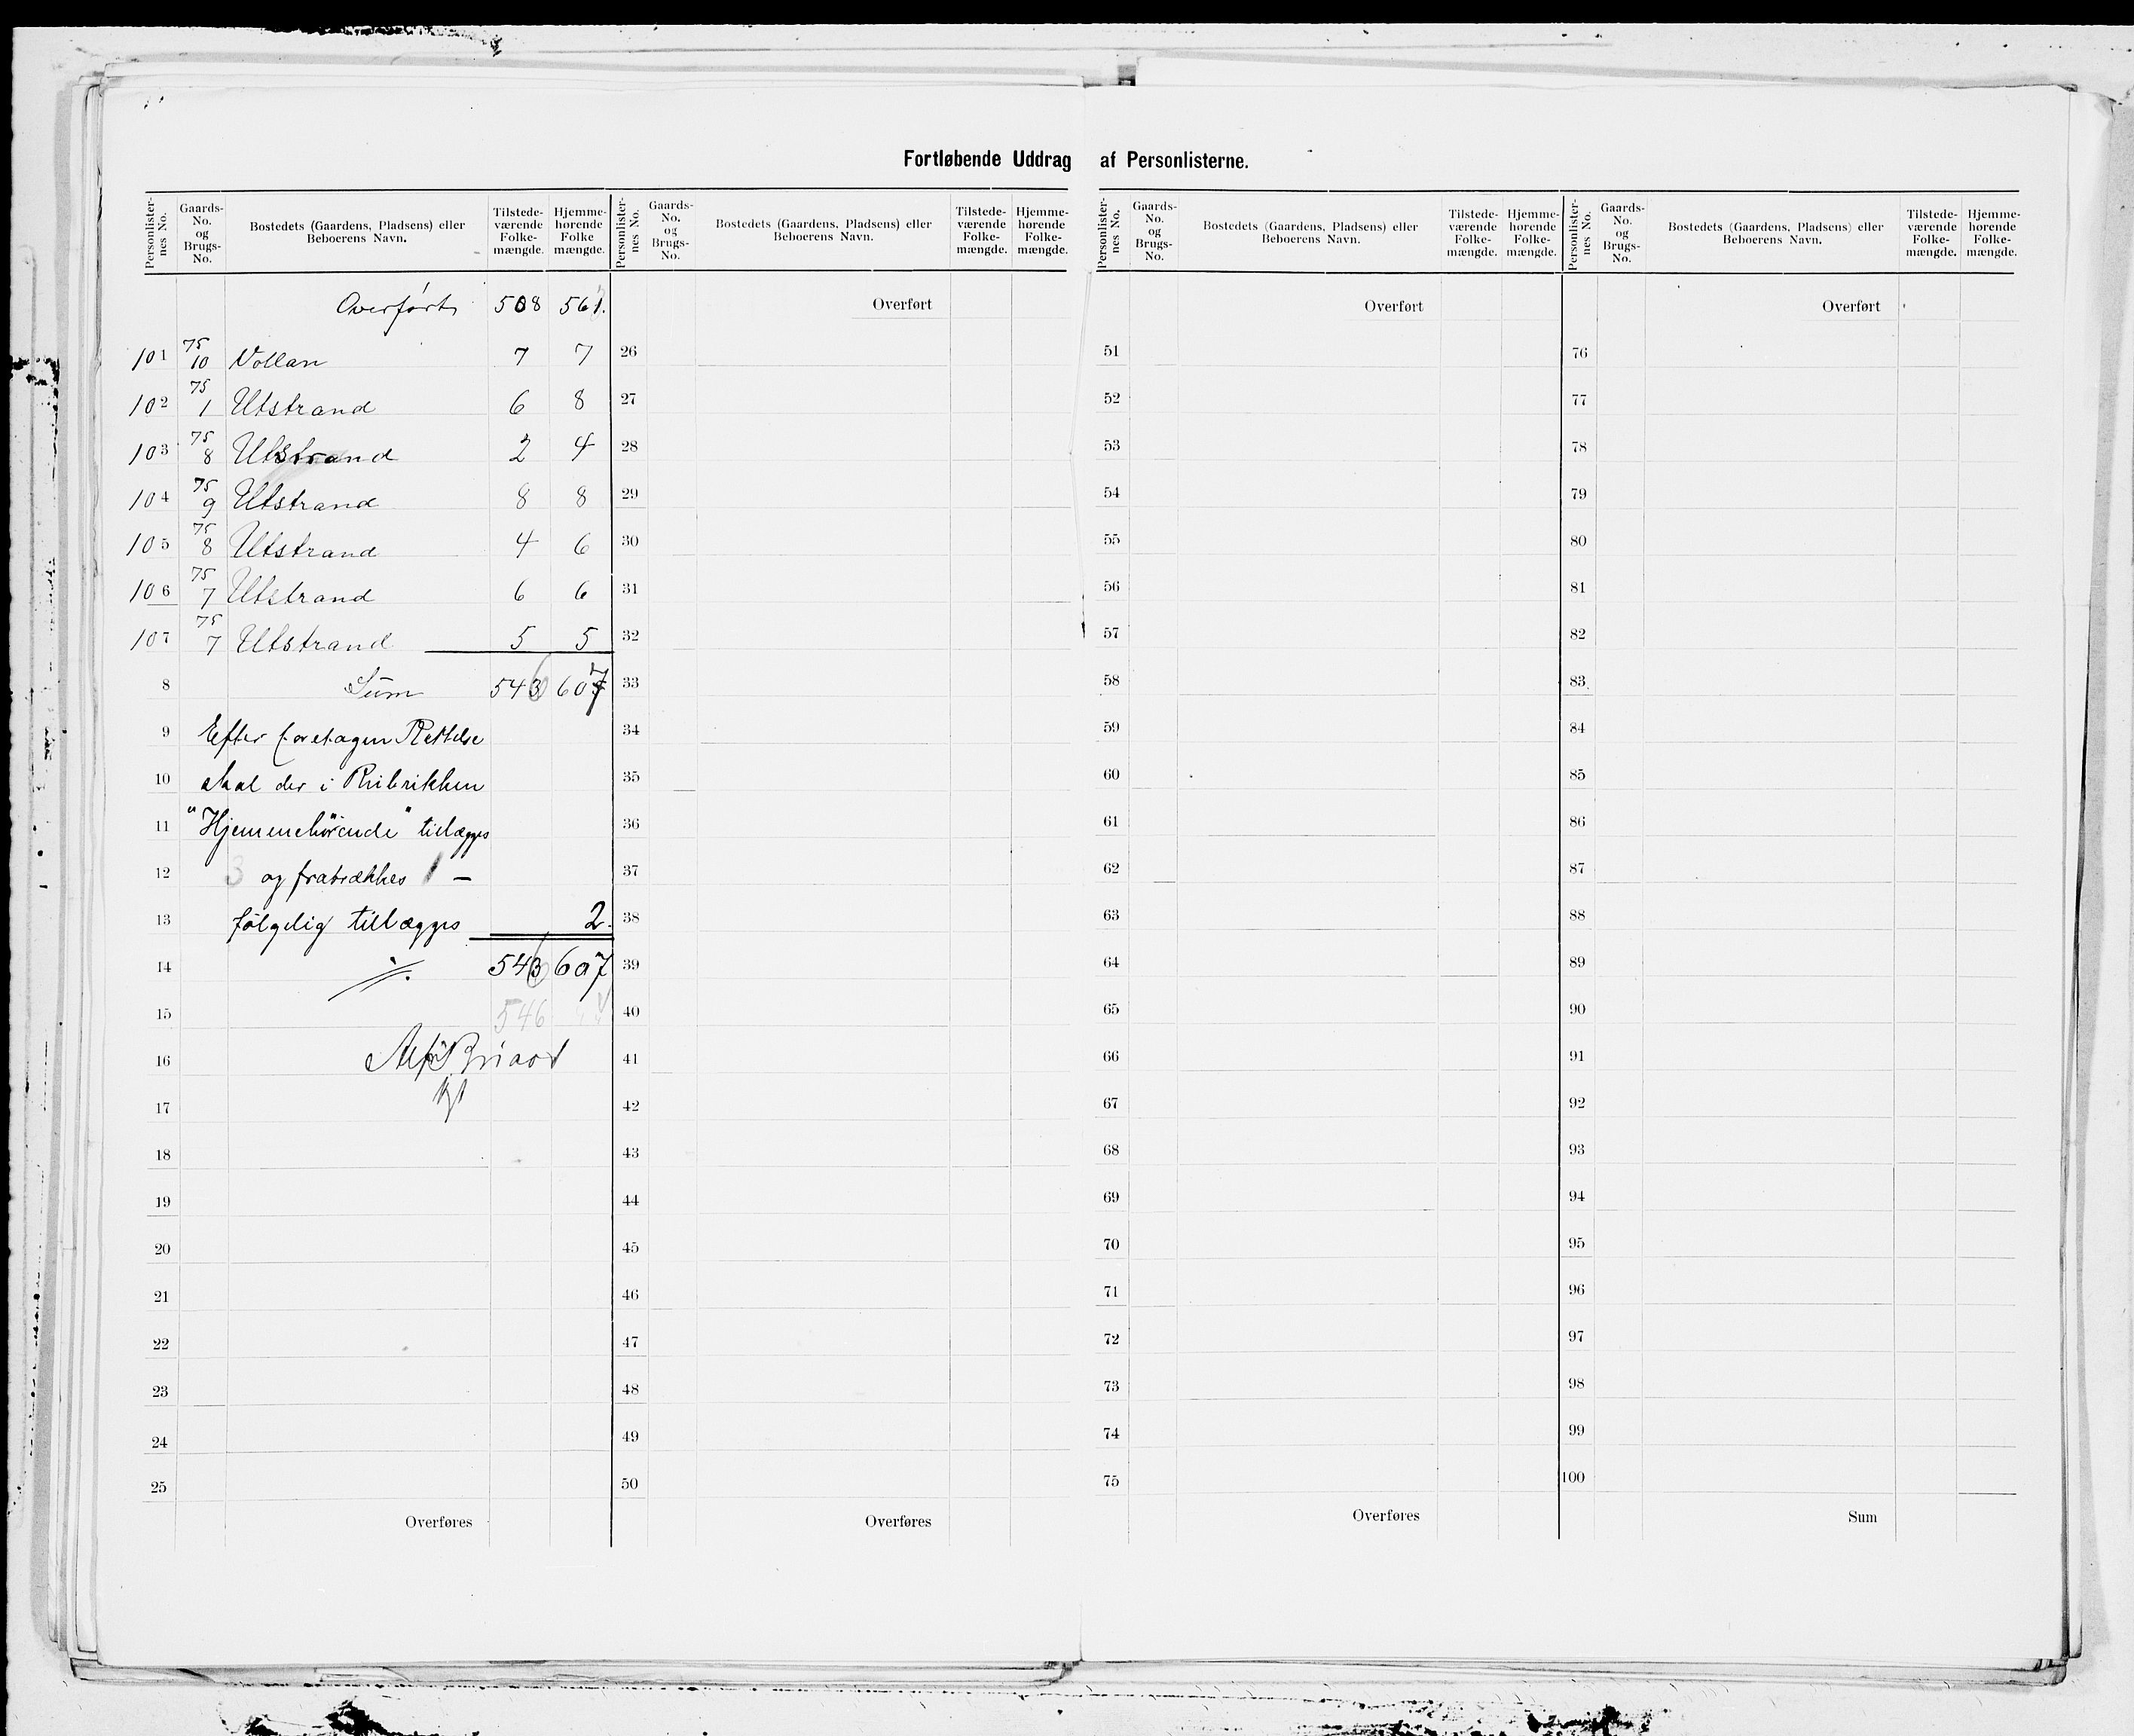 Fortløbende Uddrag af Personlisterne.
Personlister-nes No. | Gaards-No. og Brugs-No. | Bostedets (Gaardens, Pladsens) eller Beboerens Navn. | Tilstede-værende Folke-mængde. | Hjemme-hørende Folke mængde.
Overført 508 561.
101 75/10 Vollan 7 7
102 75/1 Utstrand 6 8
103 75/8 Utstrand 2 4
104 75/9 Utstrand 8 8
105 75/8 Utstrand 4 6
106 75/7 Utstrand 6 6
107 75/7 Utstrand 5 5
8 Sum 543 607
9 Efter foretagen Rettelse
10 skal der i Rubrikken
11 "Hjemmehörende" tillægges
12 3 og fratrækkes 1 –
13 følgelig tillægges 2.
14 543 607
15 546
16
17
18
19
20
21
22
23
24
25
Overføres
Personlister-nes No. | Gaards-No. og Brugs-No. | Bostedets (Gaardens, Pladsens) eller Beboerens Navn. | Tilstede-værende Folke-mængde. | Hjemme-hørende Folke-mængde.
Overført
26
27
28
29
30
31
32
33
34
35
36
37
38
39
40
41
42
43
44
45
46
47
48
49
50
Overføres
Personlister-nes No. | Gaards-No. og Brugs-No. | Bostedets (Gaardens, Pladsens) eller Beboerens Navn. | Tilstede-værende Folke-mængde. | Hjemme-hørende Folke-mængde.
Overført
51
52
53
54
55
56
57
58
59
60
61
62
63
64
65
66
67
68
69
70
71
72
73
74
75
Overføres
Personlister-nes No. | Gaards-No. og Brugs-No. | Bostedets (Gaardens, Pladsens) eller Beboerens Navn. | Tilstede-værende Folke-mængde. | Hjemme-hørende Folke-mængde.
Overført
76
77
78
79
80
81
82
83
84
85
86
87
88
89
90
91
92
93
94
95
96
97
98
99
100
Sum